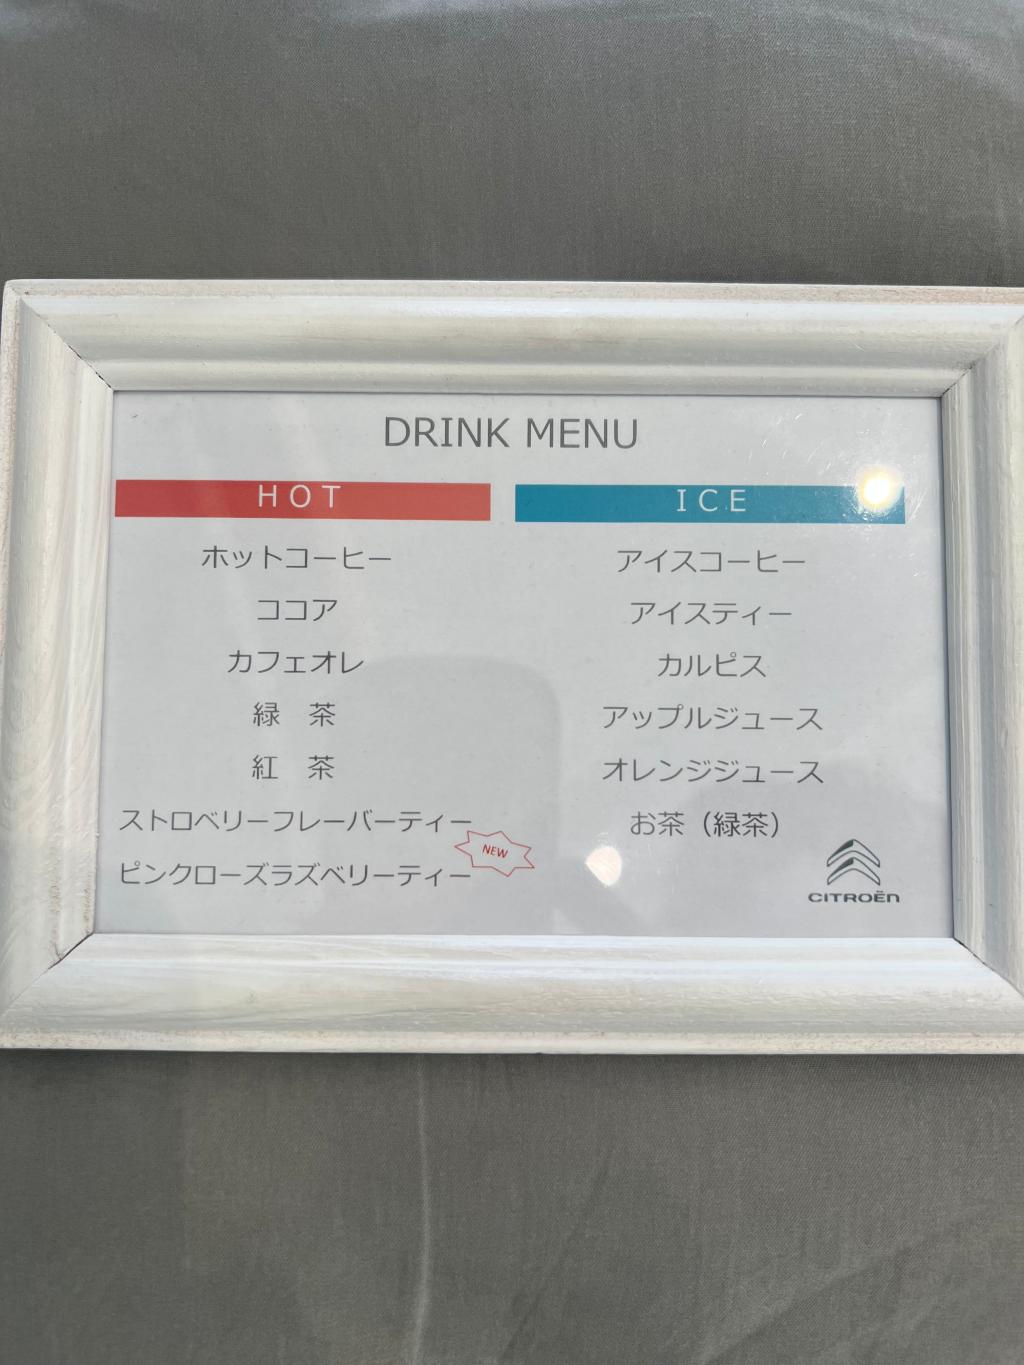 DRINK MENU
HOT
ホットコーヒー
ココア
カフェオレ
緑　茶
紅　茶
ストロベリーフレーバーティー
ピンクローズラズベリーティー
NEW
ICE
アイスコーヒー
アイスティー
カルピス
アップルジュース
オレンジジュース
お茶（緑茶）
CITROËN